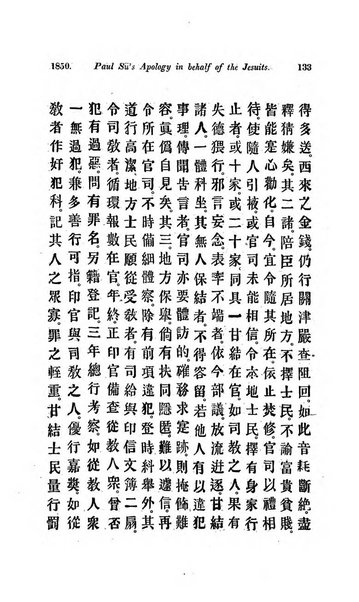 1850. Paul Sü's Apology in behalf of the Jesuits. 133
得多送西來之金錢仍行關津嚴查阻回如此音耗斷絕盡
釋猜嫌矣其二諸陪臣所居地方不擇士民不諭富貴貧賤
皆能寔心勸化自今宜令隨其所在依止焚修官司以禮相
待使隨人引被或官司未能相信令本地士民擇有身家行
止者或十家或二十家同具一甘結在官如司教之人果有
失德猥行邪言妄念表率不端者依今部議放流迸逐甘結
諸人一體科坐其無人保結者不得容留若他人有以違犯
事理傳聞告言者官司亦要體訪的確務求定跡則掩飾難
令眞僞自見矣其三地方倘有扶同隱匿難以遽信再
令所在官司不時備細體察除有前項違犯登時科舉外其
道行高潔地方士民願從受教者有司給與印信文簿二扇
令司教者循環報數在官年終正印官備查從教人衆曾否
犯有過惡問有罪名另籍登記三年總行考察如從教人衆
一無過犯兼多善行可指印官與司教之人優行嘉獎如從
教者作奸犯科記其人之衆寡罪之輕重甘結士民量行罰